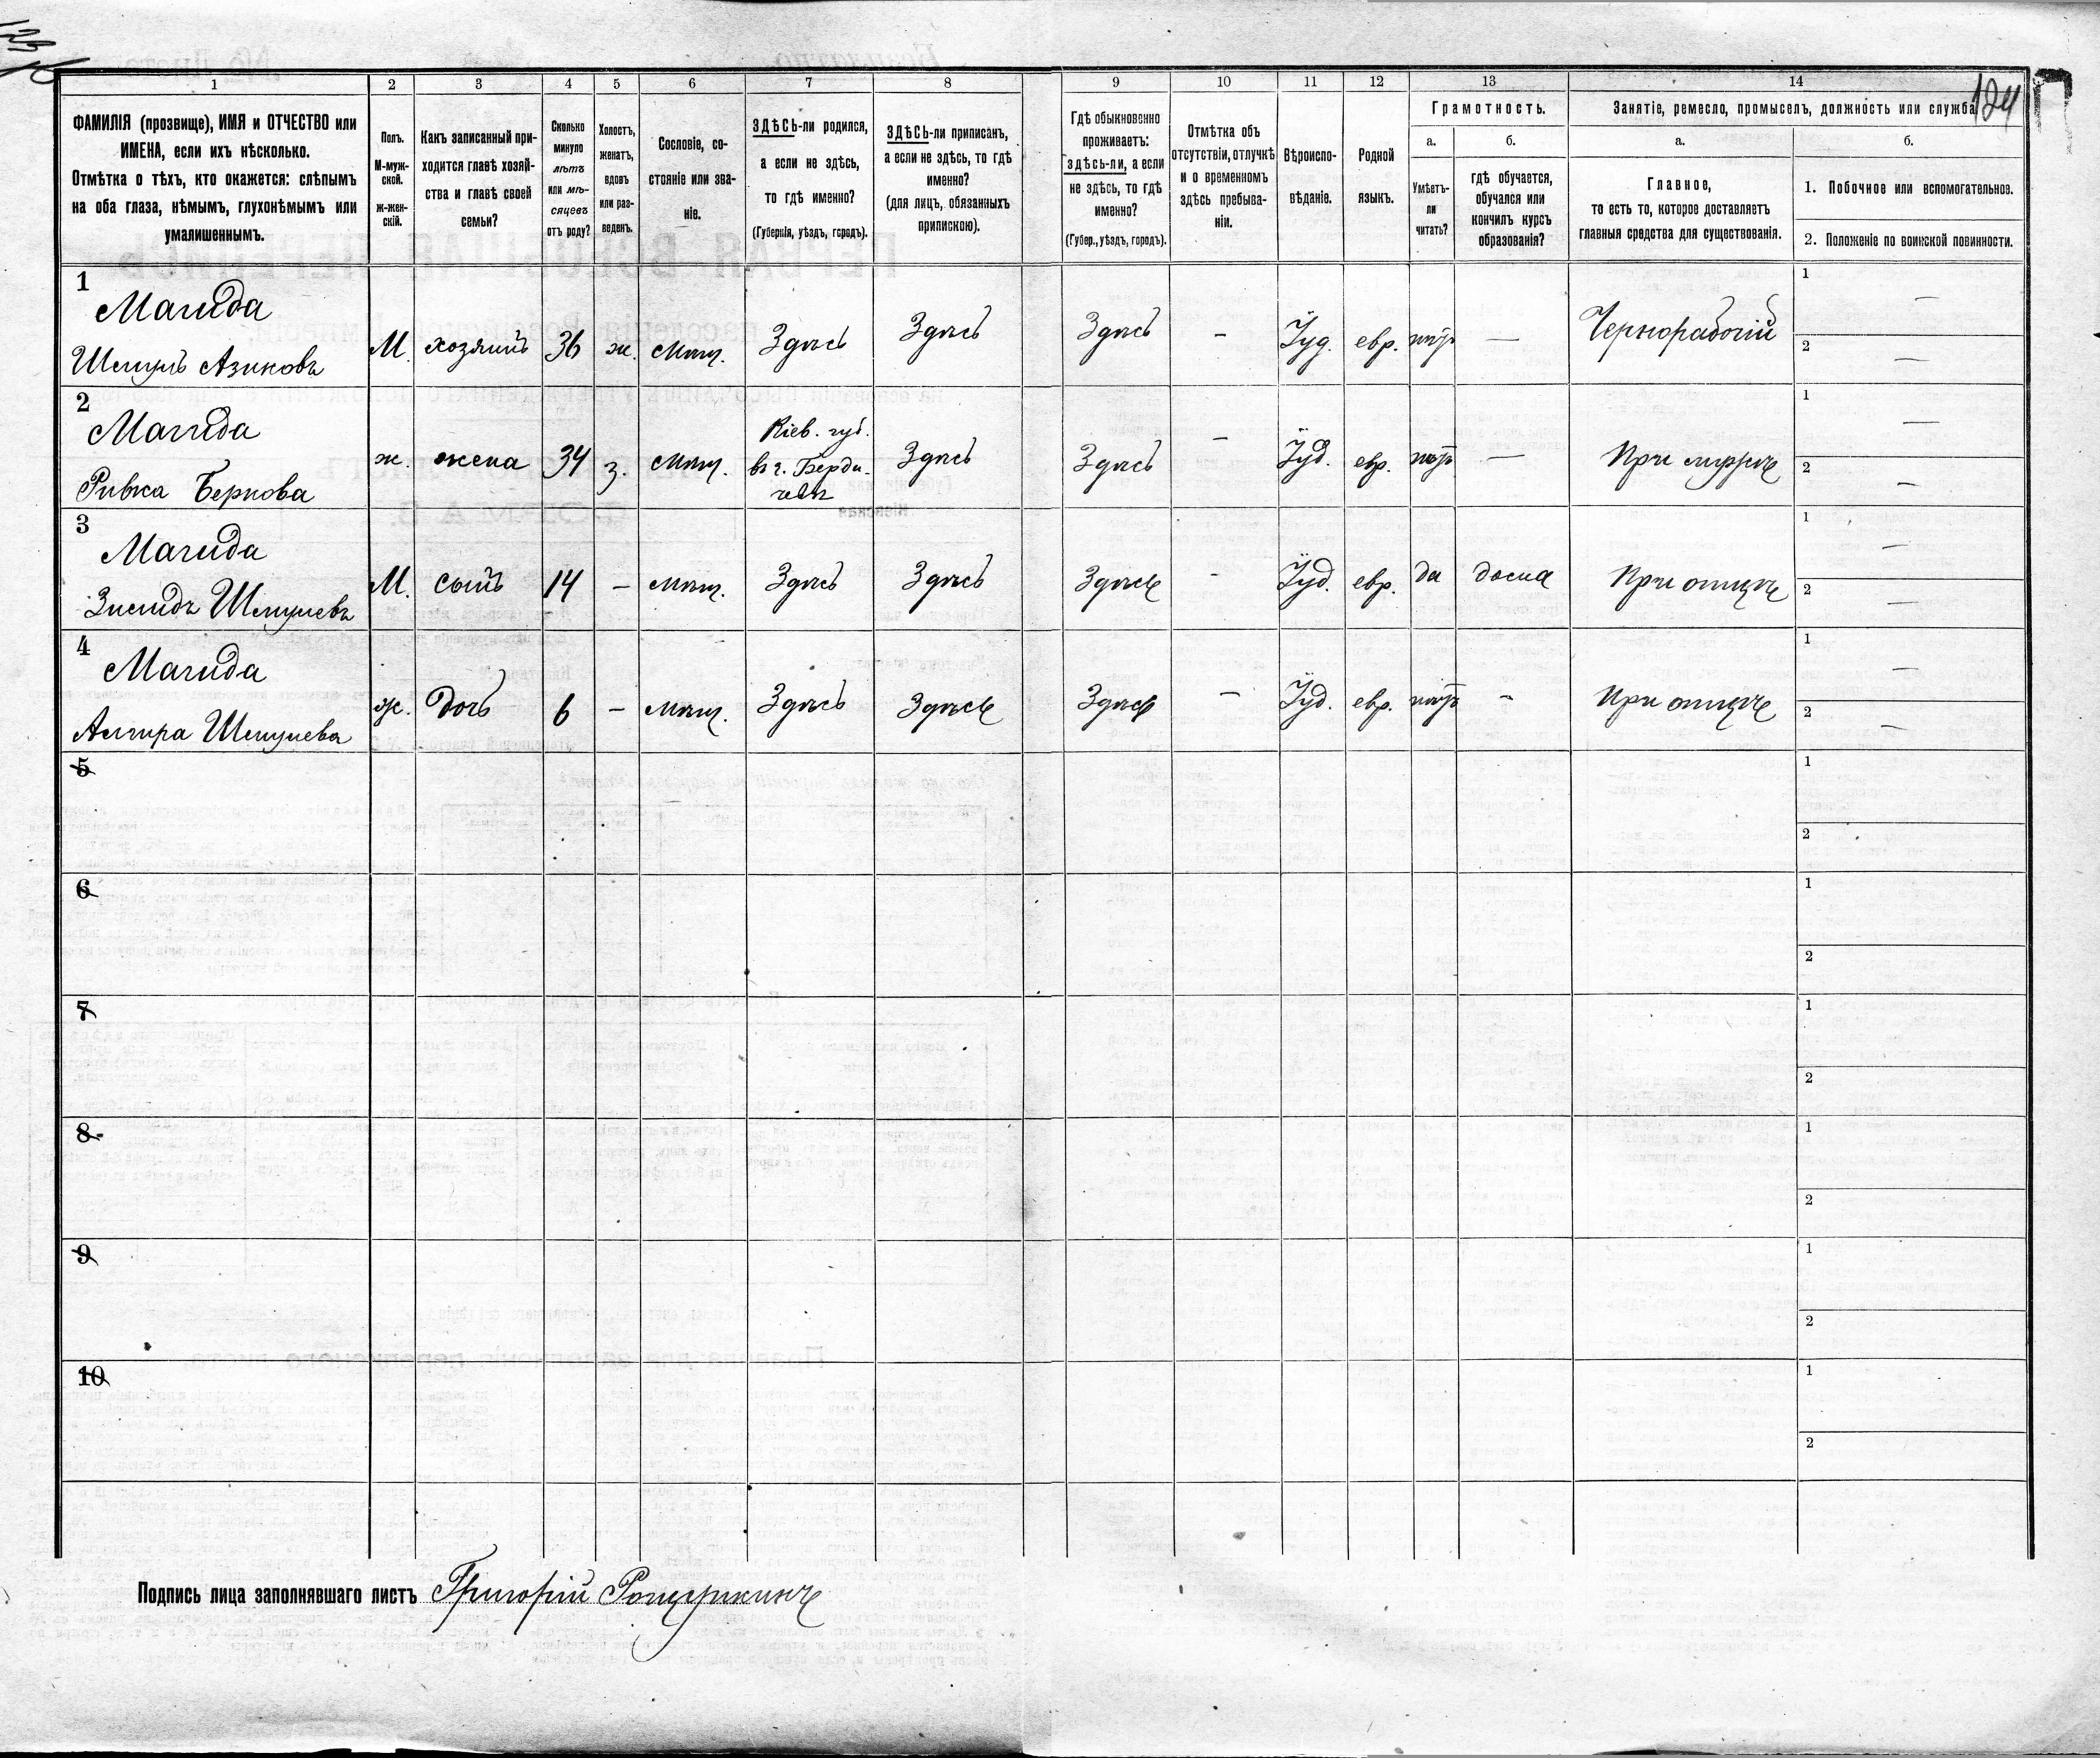 124
1 2 3 4 5 6 7 8 9 10 11 12 13 14
ФАМИЛІЯ (прозвище), ИМЯ и ОТЧЕСТВО или
ИМЕНА, если ихъ нѣсколько.
Отмѣтка о тѣхъ, кто окажется: слѣпымъ
на оба глаза, нѣмымъ, глухонѣмымъ или
умалишеннымъ.
Полъ.
М-муж-
ской.
Ж-жен-
скій.
Какъ записанный при-
ходится главѣ хозяй-
ства и главѣ своей
семьи?
Сколько
минуло
лѣтъ
или мѣ-
сяцевъ
отъ роду?
Холостъ,
женатъ,
вдовъ
или раз-
веденъ.
Сословіе, со-
стояніе или зва-
ніе.
ЗДѢСЬ-ли родился,
а если не здѣсь,
то гдѣ именно?
(Губернія, уѣздъ, городъ).
ЗДѢСЬ-ли приписанъ,
а если не здѣсь, то гдѣ
именно?
(для лицъ, обязанныхъ
припискою).
Гдѣ обыкновенно
проживаетъ:
здѣсь-ли, а если
не здѣсь, то гдѣ
именно?
(Губер., уѣздъ, городъ).
Отмѣтка объ
отсутствіи, отлучкѣ
и о временномъ
здѣсь пребыва-
ніи.
Вѣроиспо-
вѣданіе.
Родной
языкъ.
Грамотность.
а.
Умѣетъ-
ли
читать?
б.
гдѣ обучается,
обучался или
кончилъ курсъ
образованія?
Занятіе, ремесло, промыселъ, должность или служба
а.
Главное,
то есть то, которое доставляетъ
главныя средства для существованія.
б.
1. Побочное или вспомогательное.
2. Положеніе по воинской повинности.
1
Магида
Шмуль Азиковъ
М. хозяинъ 36 ж. мѣщ. Здѣсь Здѣсь Здѣсь – Іуд. евр. нѣтъ — Чернорабочій
1 —
2 —
2
Магида
Ривка Беркова
ж. жена 34 з. мѣщ.
Кіев. губ.
въ г. Берди-
чевѣ
Здѣсь Здѣсь – Іуд. евр. нѣтъ — При мужѣ
1 —
2 —
3
Магида
Шмулевъ
М. сынъ 14 – мѣщ. Здѣсь Здѣсь Здѣсь - Іуд. евр. да дома При отцѣ
1 —
2 —
4
Магида
Шмулева
ж. Дочь 6 – мѣщ. Здѣсь Здѣсь Здѣсь – Іуд. евр. нѣтъ - При отцѣ
1 —
2 —
5
1
2
6
1
2
7
1
2
8
1
2
9
1
2
10
1
2
Подпись лица заполнявшаго листъ Григорій